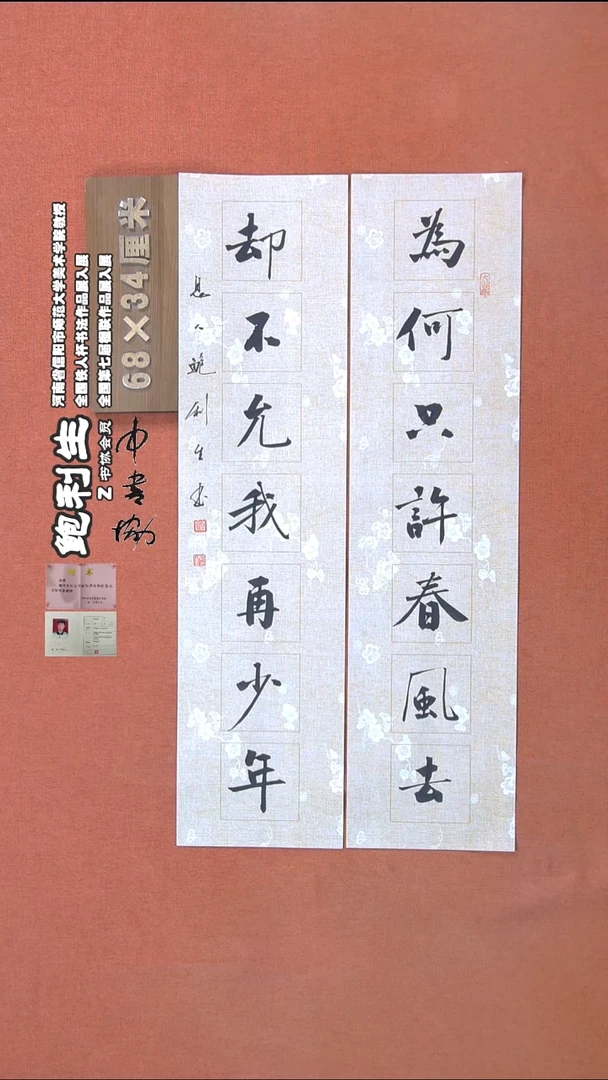 為何只許春風去
却不允我再少年
鮑利生書
68×34厘米
河南省信阳市师范大学美术学院教授
全国铁人杯书法作品展入展
全国第七届楹联作品展入展
鲍利生
Z书协会员
中书协